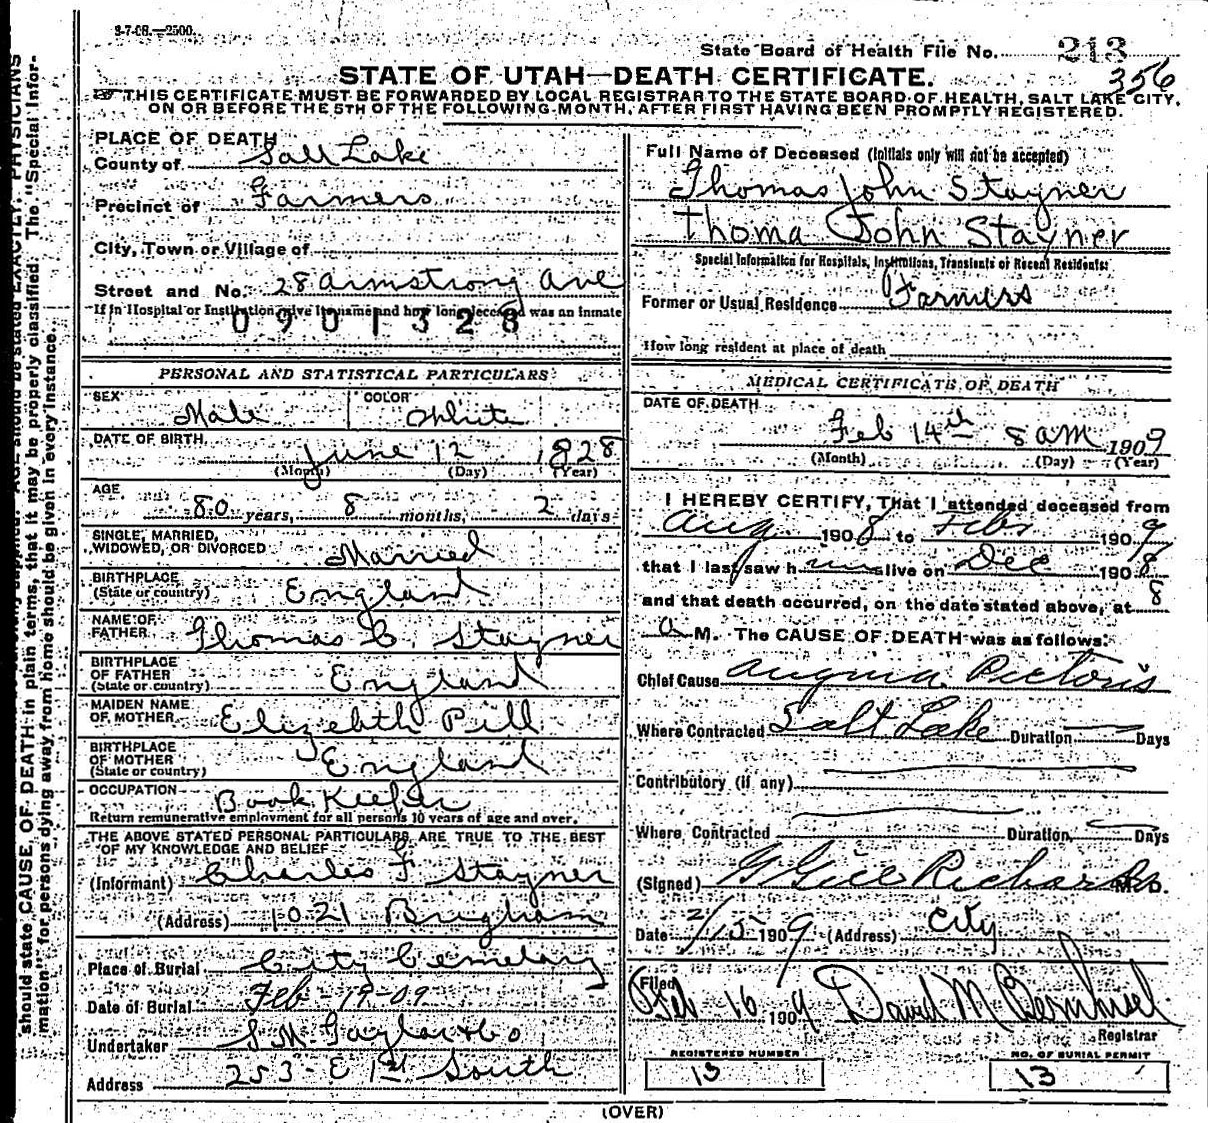 3-7-08.—2500.
State Board of Health File No. 213
356
STATE OF UTAH—DEATH CERTIFICATE.
THIS CERTIFICATE MUST BE FORWARDED BY LOCAL REGISTRAR TO THE STATE BOARD OF HEALTH, SALT LAKE CITY,
ON OR BEFORE THE 5TH OF THE FOLLOWING MONTH, AFTER FIRST HAVING BEEN PROMPTLY REGISTERED.
PLACE OF DEATH
County of Salt Lake
Precinct of Farmers
City, Town or Village of
Street and No. 28 Armstrong Ave
If in Hospital or Institution, give its name and how long deceased was an inmate
0901328
Full Name of Deceased (Initials only will not be accepted)
Thomas John Stayner
Thoma John Stayner
Special Information for Hospitals, Institutions, Transients or Recent Residents:
Former or Usual Residence Farmers
How long resident at place of death
PERSONAL AND STATISTICAL PARTICULARS
SEX Male COLOR White
DATE OF BIRTH June 12 1828
(Month) (Day) (Year)
AGE
80 years, 8 months, 2 days
SINGLE, MARRIED,
WIDOWED, OR DIVORCED Married
BIRTHPLACE
(State or country) England
NAME OF
FATHER Thomas C. Stayner
BIRTHPLACE
OF FATHER
(State or country) England
MAIDEN NAME
OF MOTHER Elizebth Pill
BIRTHPLACE
OF MOTHER
(State or country) England
OCCUPATION Book Keeper
Return remunerative employment for all persons 10 years of age and over.
THE ABOVE STATED PERSONAL PARTICULARS ARE TRUE TO THE BEST
OF MY KNOWLEDGE AND BELIEF
(Informant) Charles F Stayner
(Address) 1021 Brigham
Place of Burial City Cemetary
Date of Burial Feb-19-09
Undertaker S.M. Taylor & Co
Address 253-E 1st South
MEDICAL CERTIFICATE OF DEATH
DATE OF DEATH
Feb 14th 8 am 1909
(Month) (Day) (Year)
I HEREBY CERTIFY, That I attended deceased from
Aug 1908 to Feb 1909
that I last saw him alive on Dec 1908
and that death occurred, on the date stated above, at 8
a M. The CAUSE OF DEATH was as follows:
Chief Cause Angina Pectoris
Where Contracted Salt Lake Duration Days
Contributory (if any)
Where Contracted Duration Days
(Signed) G Gill Richards M.D.
Date 2/15 1909 (Address) City
Filed
Feb 16 1909 David M Bernhisel
Registrar
REGISTERED NUMBER
13
NO. OF BURIAL PERMIT
13
(OVER)
should state CAUSE OF DEATH in plain terms, that it may be properly classified. The "Special Infor-
mation" for persons dying away from home should be given in every instance.